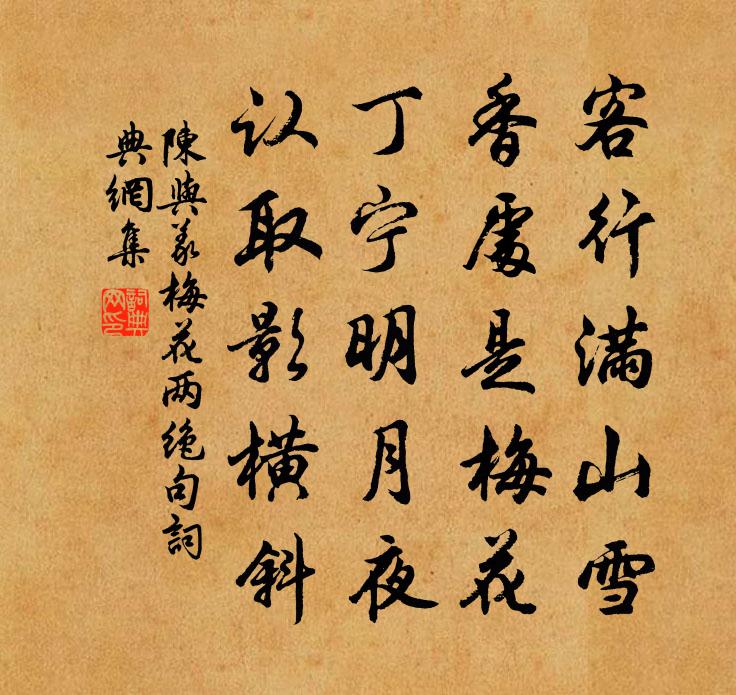 客行满山雪
香處是梅花
丁宁明月夜
认取影橫斜
陳與义梅花两绝句詞
典網集
詞典网印